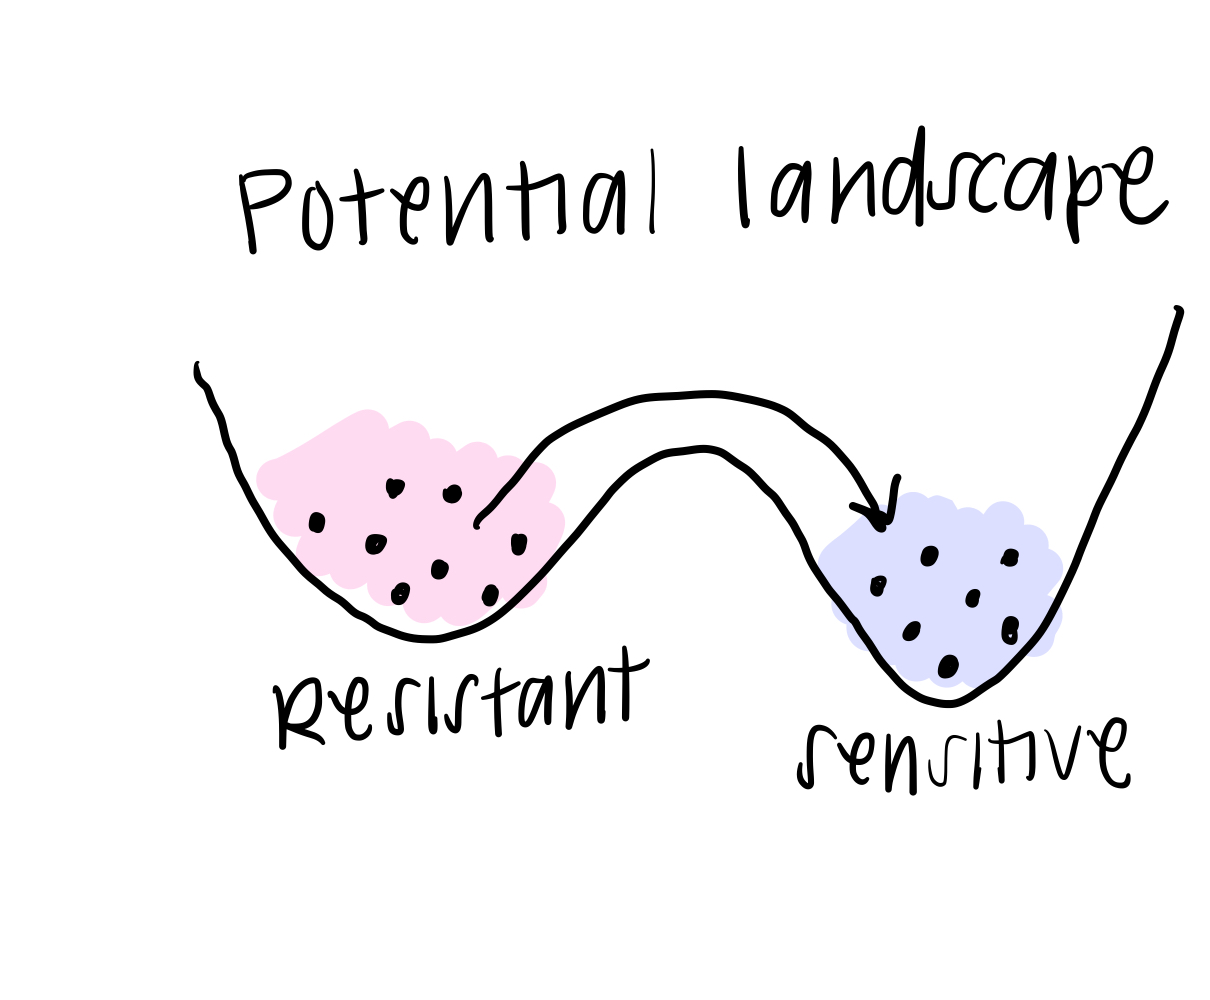 Potential landscape
Resistant
sensitive